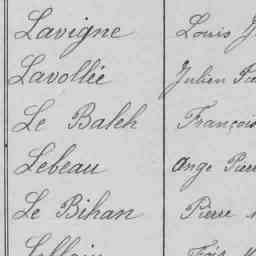 Lavigne Louis J
Lavollée Julien
Le Balch François
Lebeau Ange Pierre
Le Bihan Pierre